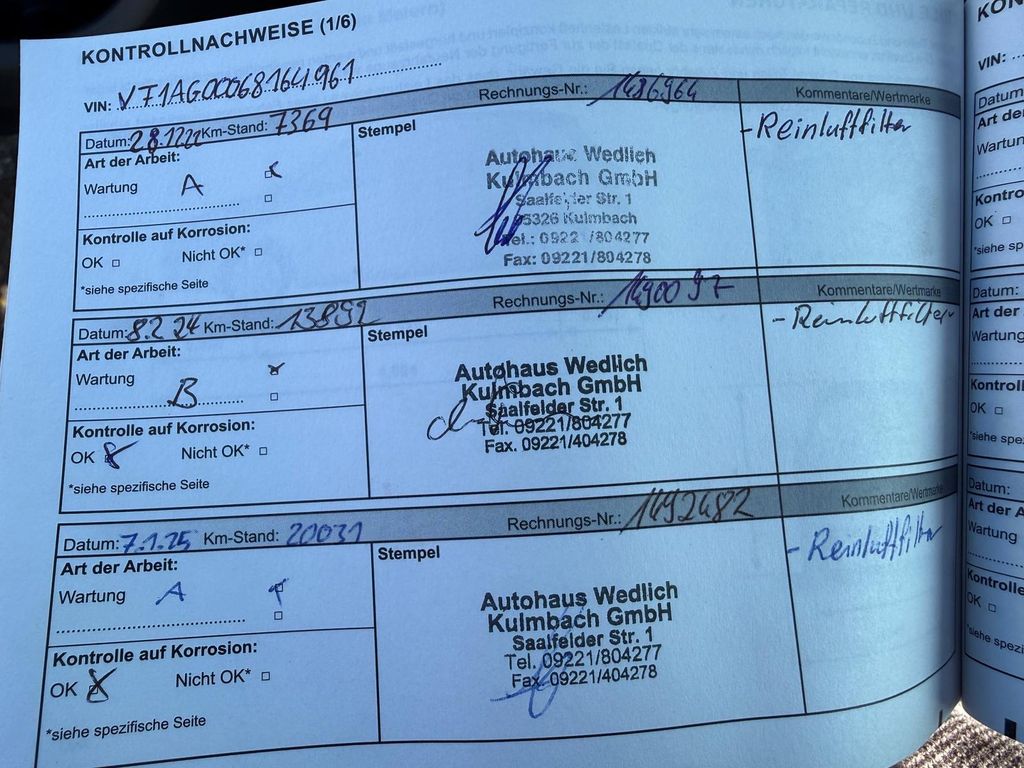 KONTROLLNACHWEISE (1/6)
VIN: VF1AG000681641961
Datum: 28.12.22 Km-Stand: 7369 Rechnungs-Nr.: 1486964 Kommentare/Wertmarke
Art der Arbeit:
Wartung A
Kontrolle auf Korrosion:
OK □ Nicht OK* □
*siehe spezifische Seite
Stempel
Autohaus Wedlich
Kulmbach GmbH
Saalfelder Str. 1
95326 Kulmbach
Tel.: 09221/804277
Fax: 09221/804278
- Reinluftfilter
Datum: 8.2.24 Km-Stand: 13892 Rechnungs-Nr.: 1490097 Kommentare/Wertmarke
Art der Arbeit:
Wartung
B
Kontrolle auf Korrosion:
OK Nicht OK* □
*siehe spezifische Seite
Stempel
Autohaus Wedlich
Kulmbach GmbH
Saalfelder Str. 1
Tel. 09221/804277
Fax. 09221/404278
- Reinluftfilter
Datum: 7.1.25 Km-Stand: 20031 Rechnungs-Nr.: 1492482 Kommentare/Wertmarke
Art der Arbeit:
Wartung A
Kontrolle auf Korrosion:
OK Nicht OK* □
*siehe spezifische Seite
Stempel
Autohaus Wedlich
Kulmbach GmbH
Saalfelder Str. 1
Tel. 09221/804277
Fax. 09221/404278
- Reinluftfilter
VIN:
Datum:
Art der
Wartung
Kontro
OK □
*siehe
Datum:
Art der
Wartung
Kontroll
OK □
*siehe spe
Datum:
Art der A
Wartung
Kontrolle
OK □
*siehe spezi